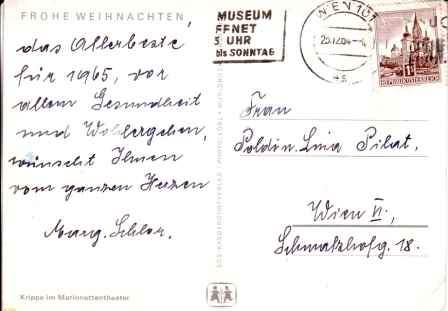 FROHE WEIHNACHTEN,
das Allerbeste
für 1965, vor
allem Gesundheit
und Wohlergehen,
wünscht Ihnen
vom ganzen Herzen
Marg. Schlor.
Krippe im Marionettentheater
SOS-KINDERDORFVERLAG · PHOTO: LÖBL · WUB-DRUCK
MUSEUM
FFNET
UHR
bis SONNTAG
WIEN 101
REPUBLIK ÖSTERREICH
Frau
Poldin. Lina Pilat,
Wien VI.,
Schmalzhofg. 18.